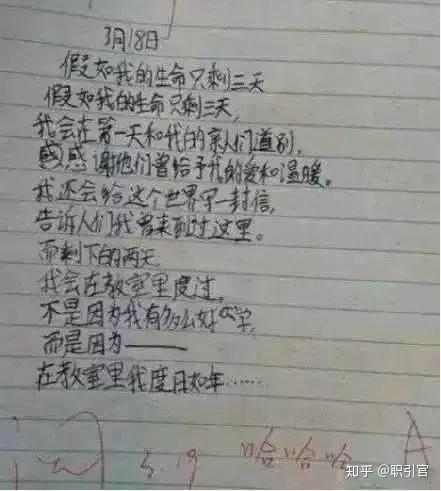 3月18日
假如我的生命只剩三天
假如我的生命只剩三天,
我会在第一天和我的亲人们道别,
感感谢他们曾给予我的爱和温暖。
我还会给这个世界写一封信,
告诉人们我曾来到过这里。
而剩下的两天
我会在教室里度过,
不是因为我有多么好学,
而是因为——
在教室里我度日如年……
阅 3.19 哈哈哈 A
知乎 @职引官